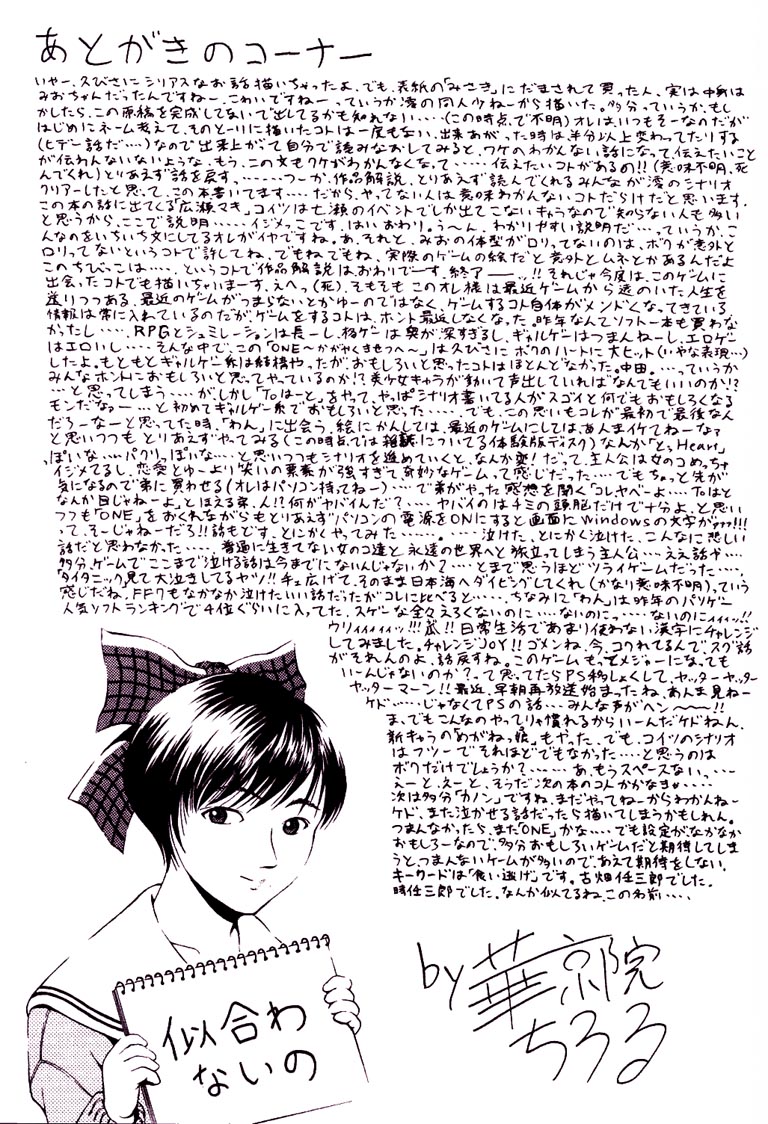 あとがきのコーナー
いやー、久びさにシリアスなお話描いちゃったよ、でも、表紙の「みさき」にだまされて買った人、実は中身は
みおちゃんだったんですねー、こわいですねー、っていうか澪の同人少ねーから描いた。多分っていうか、もし
かしたら、この原稿を完成してないで出してるかも知れない‥‥(この時点で不明)オレは、いつもそーなのだが
はじめにネーム考えて、そのとーりに描いたコトは一度もない、出来あがった時は半分以上変わってたりする
(ヒデー話だ‥‥)なので出来上がって自分で読みなおしてみると、ワケのわかんない話になって、伝えたいこと
が伝わんないないような、もう、この文もワケがわかんなくなって‥‥‥伝えたいコトがあるの!!(意味不明、死
んでくれ)とりあえず話を戻す、‥‥‥つーか、作品解説、とりあえず読んでくれるみんなが澪のシナリオ
クリアーしたと思って、この本書いてます‥‥だから、やってない人は意味わかんないコトだらけだと思います、
この本の話に出てくる「広瀬マキ」コイツは七瀬のイベントでしか出てこないキャラなので知らない人も多い
と思うから、ここで説明‥‥‥イジメっこです、はいおわり。う〜ん、わかりやすい説明だ‥‥っていうか、こ
んなのをいちいち文にしてるオレがイヤですね。あ、それと、みおの体型がロリってないのは、ボクが意外と
ロリってないというコトで許してね、でもねでもね、実際のゲームの絵だと意外とムネとかあるんだよ
このちびっこは‥‥、というコトで作品解説はおわりでーす、終了ァ――ッ!!それじゃ今度は、このゲームに
出会ったコトでも描いちゃいまーす、えへっ(死)、そもそもこのオレ様は最近ゲームから遠のいた人生を
送りつつある、最近のゲームがつまらないとかゆーのではなく、ゲームするコト自体がメンドくなってきている
情報は常に入れているのだが、ゲームをするコトは、ホント最近しなくなった、昨年なんてソフト一本も買わな
かったし‥‥、RPGとシュミレーションは長ーし、格ゲーは奥が深すぎるし、ギャルゲーはつまんねーし、エロゲー
はエロいし‥‥そんな中で、この「ONE〜かがやくきせつへ〜」は久びさにボクのハートに大ヒット(いやな表現…)
したよ。もともとギャルゲー系は結構やったが、おもしろいと思ったコトはほとんどなかった。中田、‥‥っていうか
みんなホントにおもしろいと思ってやっているのか!?美少女キャラが動いて声出していればなんでもいいのか!?
‥‥と思ってしまう‥‥がしかし「Toはーと」をやって、やっぱシナリオ書いてる人がスゴイと何でもおもしろくなる
モンだなぁー‥‥と初めてギャルゲー系でおもしろいと思った‥‥‥でも、この思いもコレが最初で最後なん
だろーなーと思ってた時、「わん」に出会う、絵にかんしては、最近のゲームにしては、あんまイケてねーなァ
と思いつつもとりあえずやってみる(この時点では雑誌についてる体験版ディスク)なんか「とぅHeart」
っぽいな‥‥パクりっぽいな‥‥と思いつつもシナリオを進めていくと、なんか変!だって、主人公は女のコめっちゃ
イジメてるし、恋愛とゆーより笑いの要素が強すぎて奇妙なゲームって感じだった‥‥でもちょっと先が
気になるので弟に買わせる(オレはパソコン持ってねー)‥‥で弟がやった感想を聞く「コレヤベーよ‥‥Toはと
なんか目じゃねーよ」とほえる弟、ん!?何がヤバイんだ?‥‥、ヤバイのはチミの頭脳だけで十分よ、と思い
つつも「ONE」をおくれながらもとりあえずパソコンの電源をONにすると画面にWindowsの文字がァァァ!!!
って、そーじゃねーだろ!!話もどす、とにかくやってみた‥‥‥。‥‥泣けた、とにかく泣けた、こんなに悲しい
話だと思わなかった‥‥‥普通に生きてない女のコ達と永遠の世界へと旅立ってしまう主人公‥‥ええ話や‥‥
多分、ゲームでここまで泣ける話は今までにないんじゃないか?‥‥とまで思うほどツライゲームだった‥‥、
「タイタニック」見て大泣きしてるヤツ!!手広げて、そのまま日本海へダイビングしてくれ(かなり意味不明)、っていう
感じだね、FF7もなかなか泣けたいい話だったがコレに比べると‥‥、ちなみに「わん」は昨年のパソゲー
人気ソフトランキングで4位ぐらいに入ってた、スゲーな全々えろくないのに‥‥ないのにっ‥‥ないのにィィィッ!!
ウリィィィィィッ!!!瓜!!日常生活であまり使わない漢字にチャレンジ
してみました。チャレンジJOY!!ゴメンね、今、コワれてるんでスグ話
がそれんのよ、話戻すね。このゲームもってメジャーになっても
いーんじゃないのか?、って思ってたらPS移しょくして、ヤッターヤッター
ヤッターマーン!!最近、早朝再放送始まったね、あんま見ねー
ケド‥‥‥じゃなくてPSの話‥‥みんな声がヘン〜〜〜!!
ま、でもこんなのやってりゃ慣れるからいーんだケドねん、
新キャラのめがねっ娘、もやった、でも、コイツのシナリオ
はフツーでそれほどでもなかった‥‥と思うのは
ボクだけでしょうか?‥‥‥あ、もうスペースない、‥‥
えーと、えーと、そうだ次の本のコトかかなきゃ‥‥
次は多分「カノン」ですね、まだやってねーからわかんねー
ケド、また泣かせる話だったら描いてしまうかもしれん。
つまんなかったら、また「ONE」かな‥‥でも設定がなかなか
おもしろーなので、多分おもしろいゲームだと期待してしま
うと、つまんないゲームが多いので、あえて期待をしない、
キーワードは「食い逃げ」です。古畑任三郎でした。
時任三郎でした、なんか似てるね、この名前‥‥、
by 華京院
ちろる
似合わ
ないの